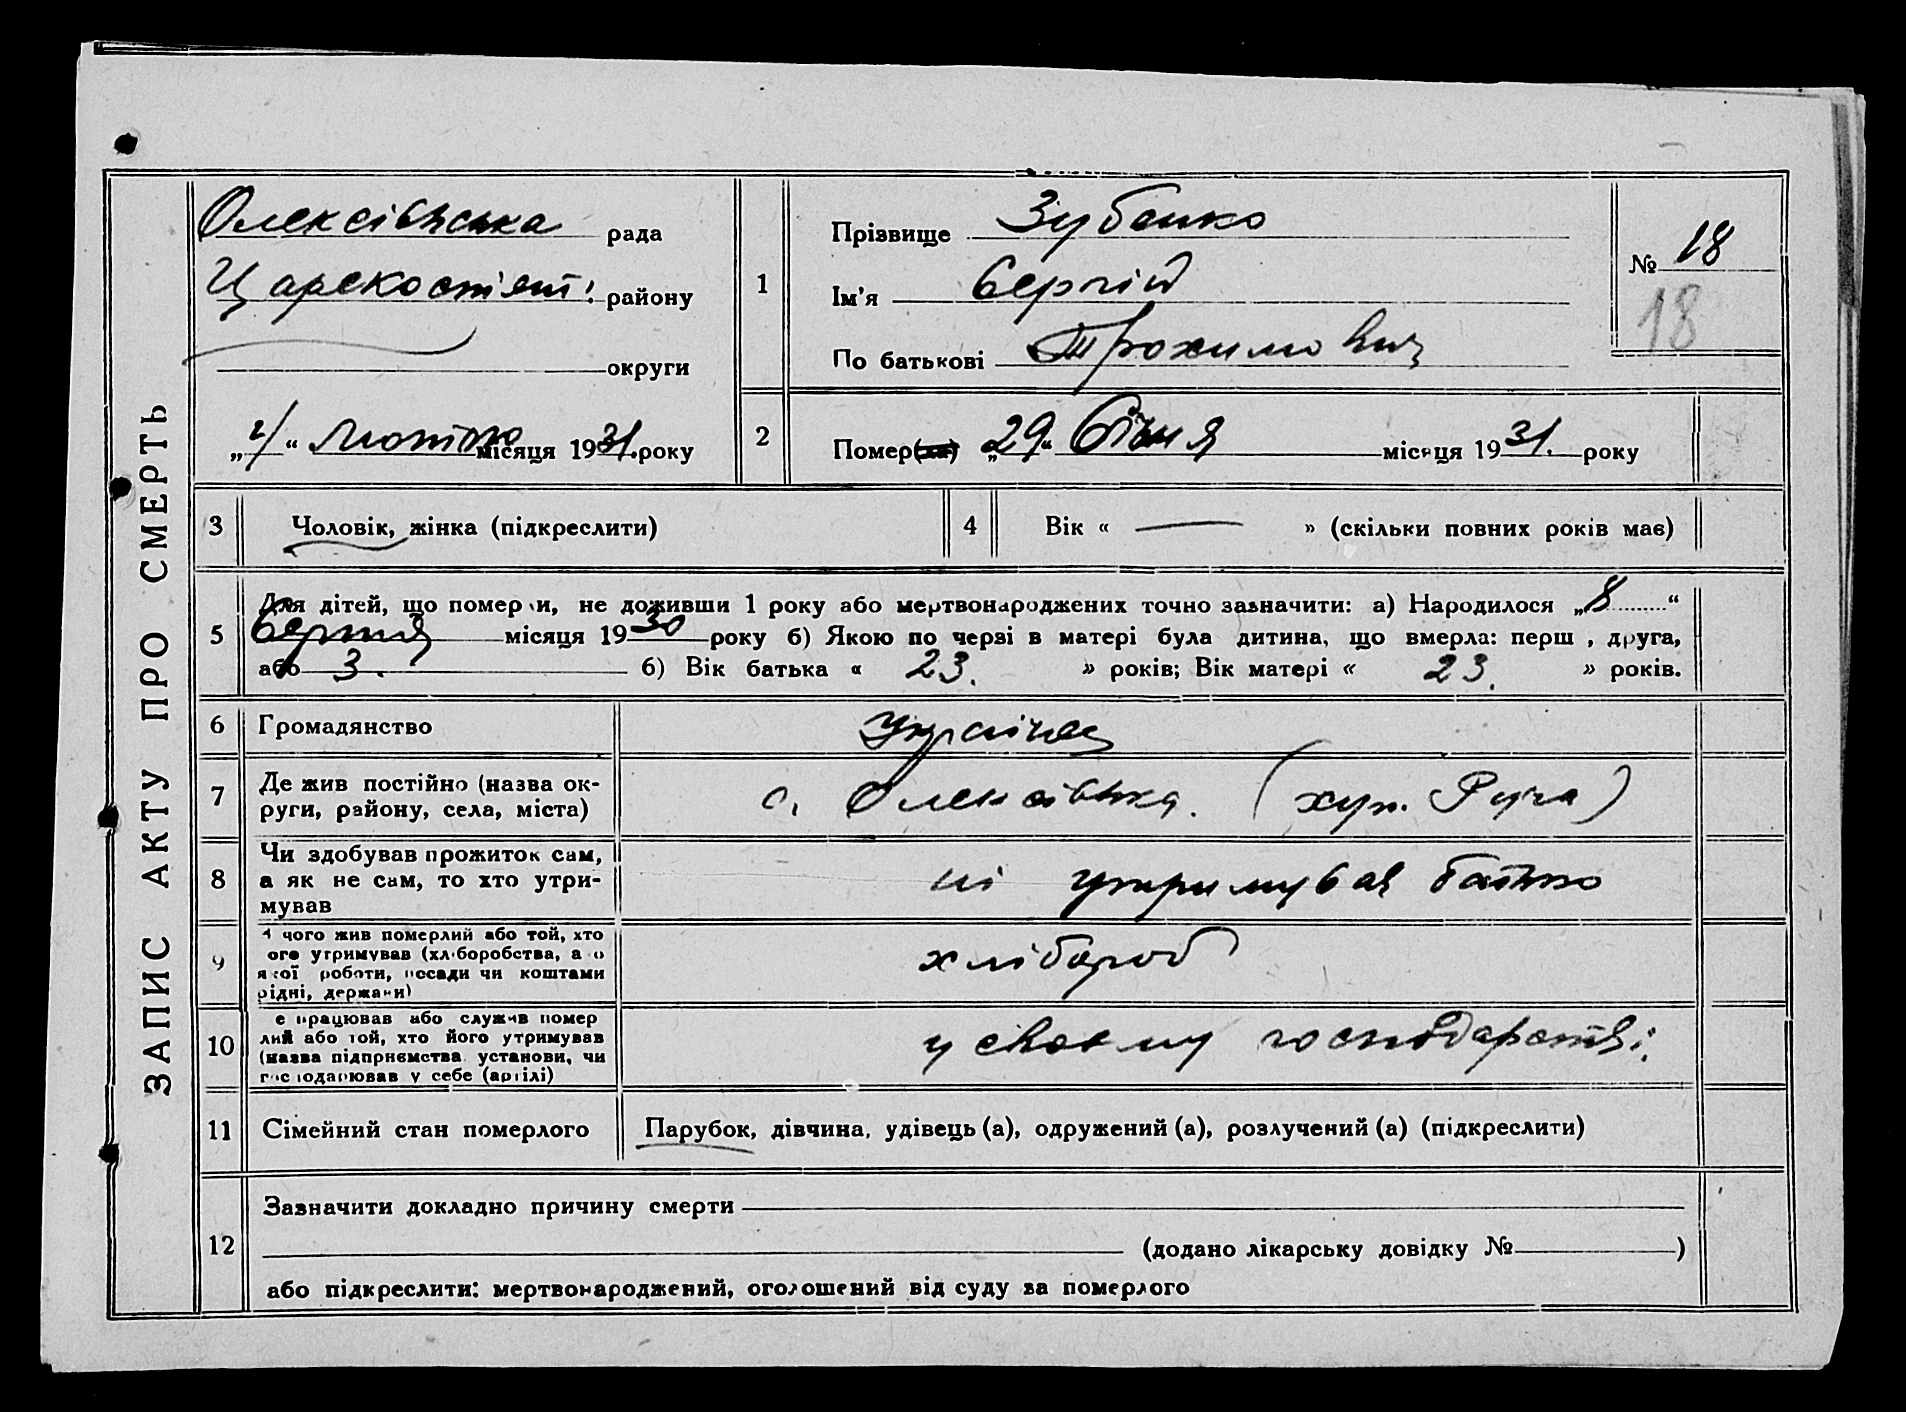 ЗАПИС АКТУ ПРО СМЕРТЬ
Олексіївська рада
Царекост'янт. району
округи
„4“ лютого місяця 1931. року
1
Прізвище Зубенко
Ім'я Сергій
По батькові Трохимович
№ 18
18
2
Помер(ла) „29“ Січня місяця 1931. року
3 Чоловік, жінка (підкреслити)
4 Вік « — » (скільки повних років має)
5 Для дітей, що померли, не доживши 1 року або мертвонароджених точно зазначити: а) Народилося „8“
Серпня місяця 1930 року б) Якою по черзі в матері була дитина, що вмерла: перша, друга,
або 3. б) Вік батька « 23. » років; Вік матері « 23. » років.
6 Громадянство українец
7 Де жив постійно (назва ок-
руги, району, села, міста)
с. Олексіївка. (хут. Руча)
8 Чи здобував прожиток сам,
а як не сам, то хто утри-
мував
ні утримував батько
9 З чого жив померлий або той, хто
ого утримував (хліборобства, а о
якої роботи, посади чи коштами
рідні, держави)
хлібороб
10 е працював або служив помер
лий або той, хто його утримував
(назва підприємства установи, чи
господарював у себе (артілі)
у своєму господарстві.
11 Сімейний стан померлого Парубок, дівчина, удівець (а), одружений (а), розлучений (а) (підкреслити)
12 Зазначити докладно причину смерти
(додано лікарську довідку № )
або підкреслити: мертвонароджений, оголошений від суду за померлого